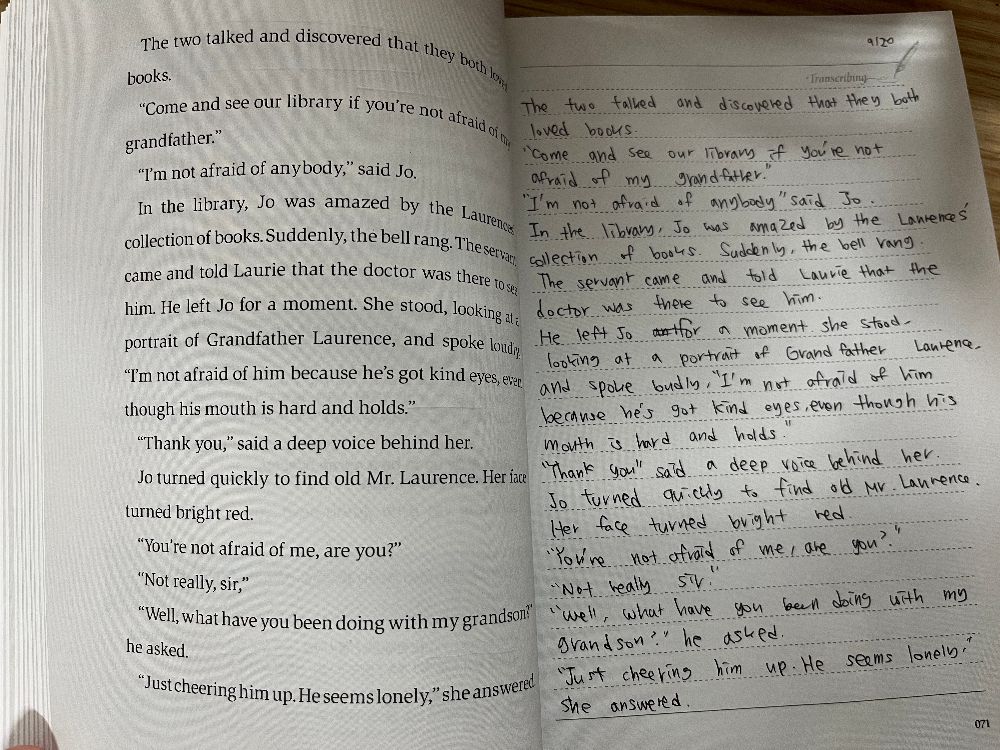 The two talked and discovered that they both loved
books.
“Come and see our library if you’re not afraid of my
grandfather.”
“I’m not afraid of anybody,” said Jo.
In the library, Jo was amazed by the Laurences’
collection of books. Suddenly, the bell rang. The servant
came and told Laurie that the doctor was there to see
him. He left Jo for a moment. She stood, looking at a
portrait of Grandfather Laurence, and spoke loudly,
“I’m not afraid of him because he’s got kind eyes, even
though his mouth is hard and holds.”
“Thank you,” said a deep voice behind her.
Jo turned quickly to find old Mr. Laurence. Her face
turned bright red.
“You’re not afraid of me, are you?”
“Not really, sir,”
“Well, what have you been doing with my grandson?”
he asked.
“Just cheering him up. He seems lonely,” she answered
9/20
Transcribing
The two talked and discovered that they both
loved books.
"Come and see our library if you're not
afraid of my grandfather."
"I'm not afraid of anybody" said Jo.
In the library, Jo was amazed by the Laurences'
collection of books. Suddenly, the bell rang.
The servant came and told Laurie that the
doctor was there to see him.
He left Jo for a moment she stood
looking at a portrait of Grand father Laurence
and spoke loudly, "I'm not afraid of him
because he's got kind eyes, even though his
mouth is hard and holds."
"Thank you" said a deep voice behind her.
Jo turned quickly to find old Mr. Laurence.
Her face turned bright red
"You're not afraid of me, are you?"
"Not really sir."
"Well, what have you been doing with my
grandson?" he asked.
"Just cheering him up. He seems lonely."
she answered.
071